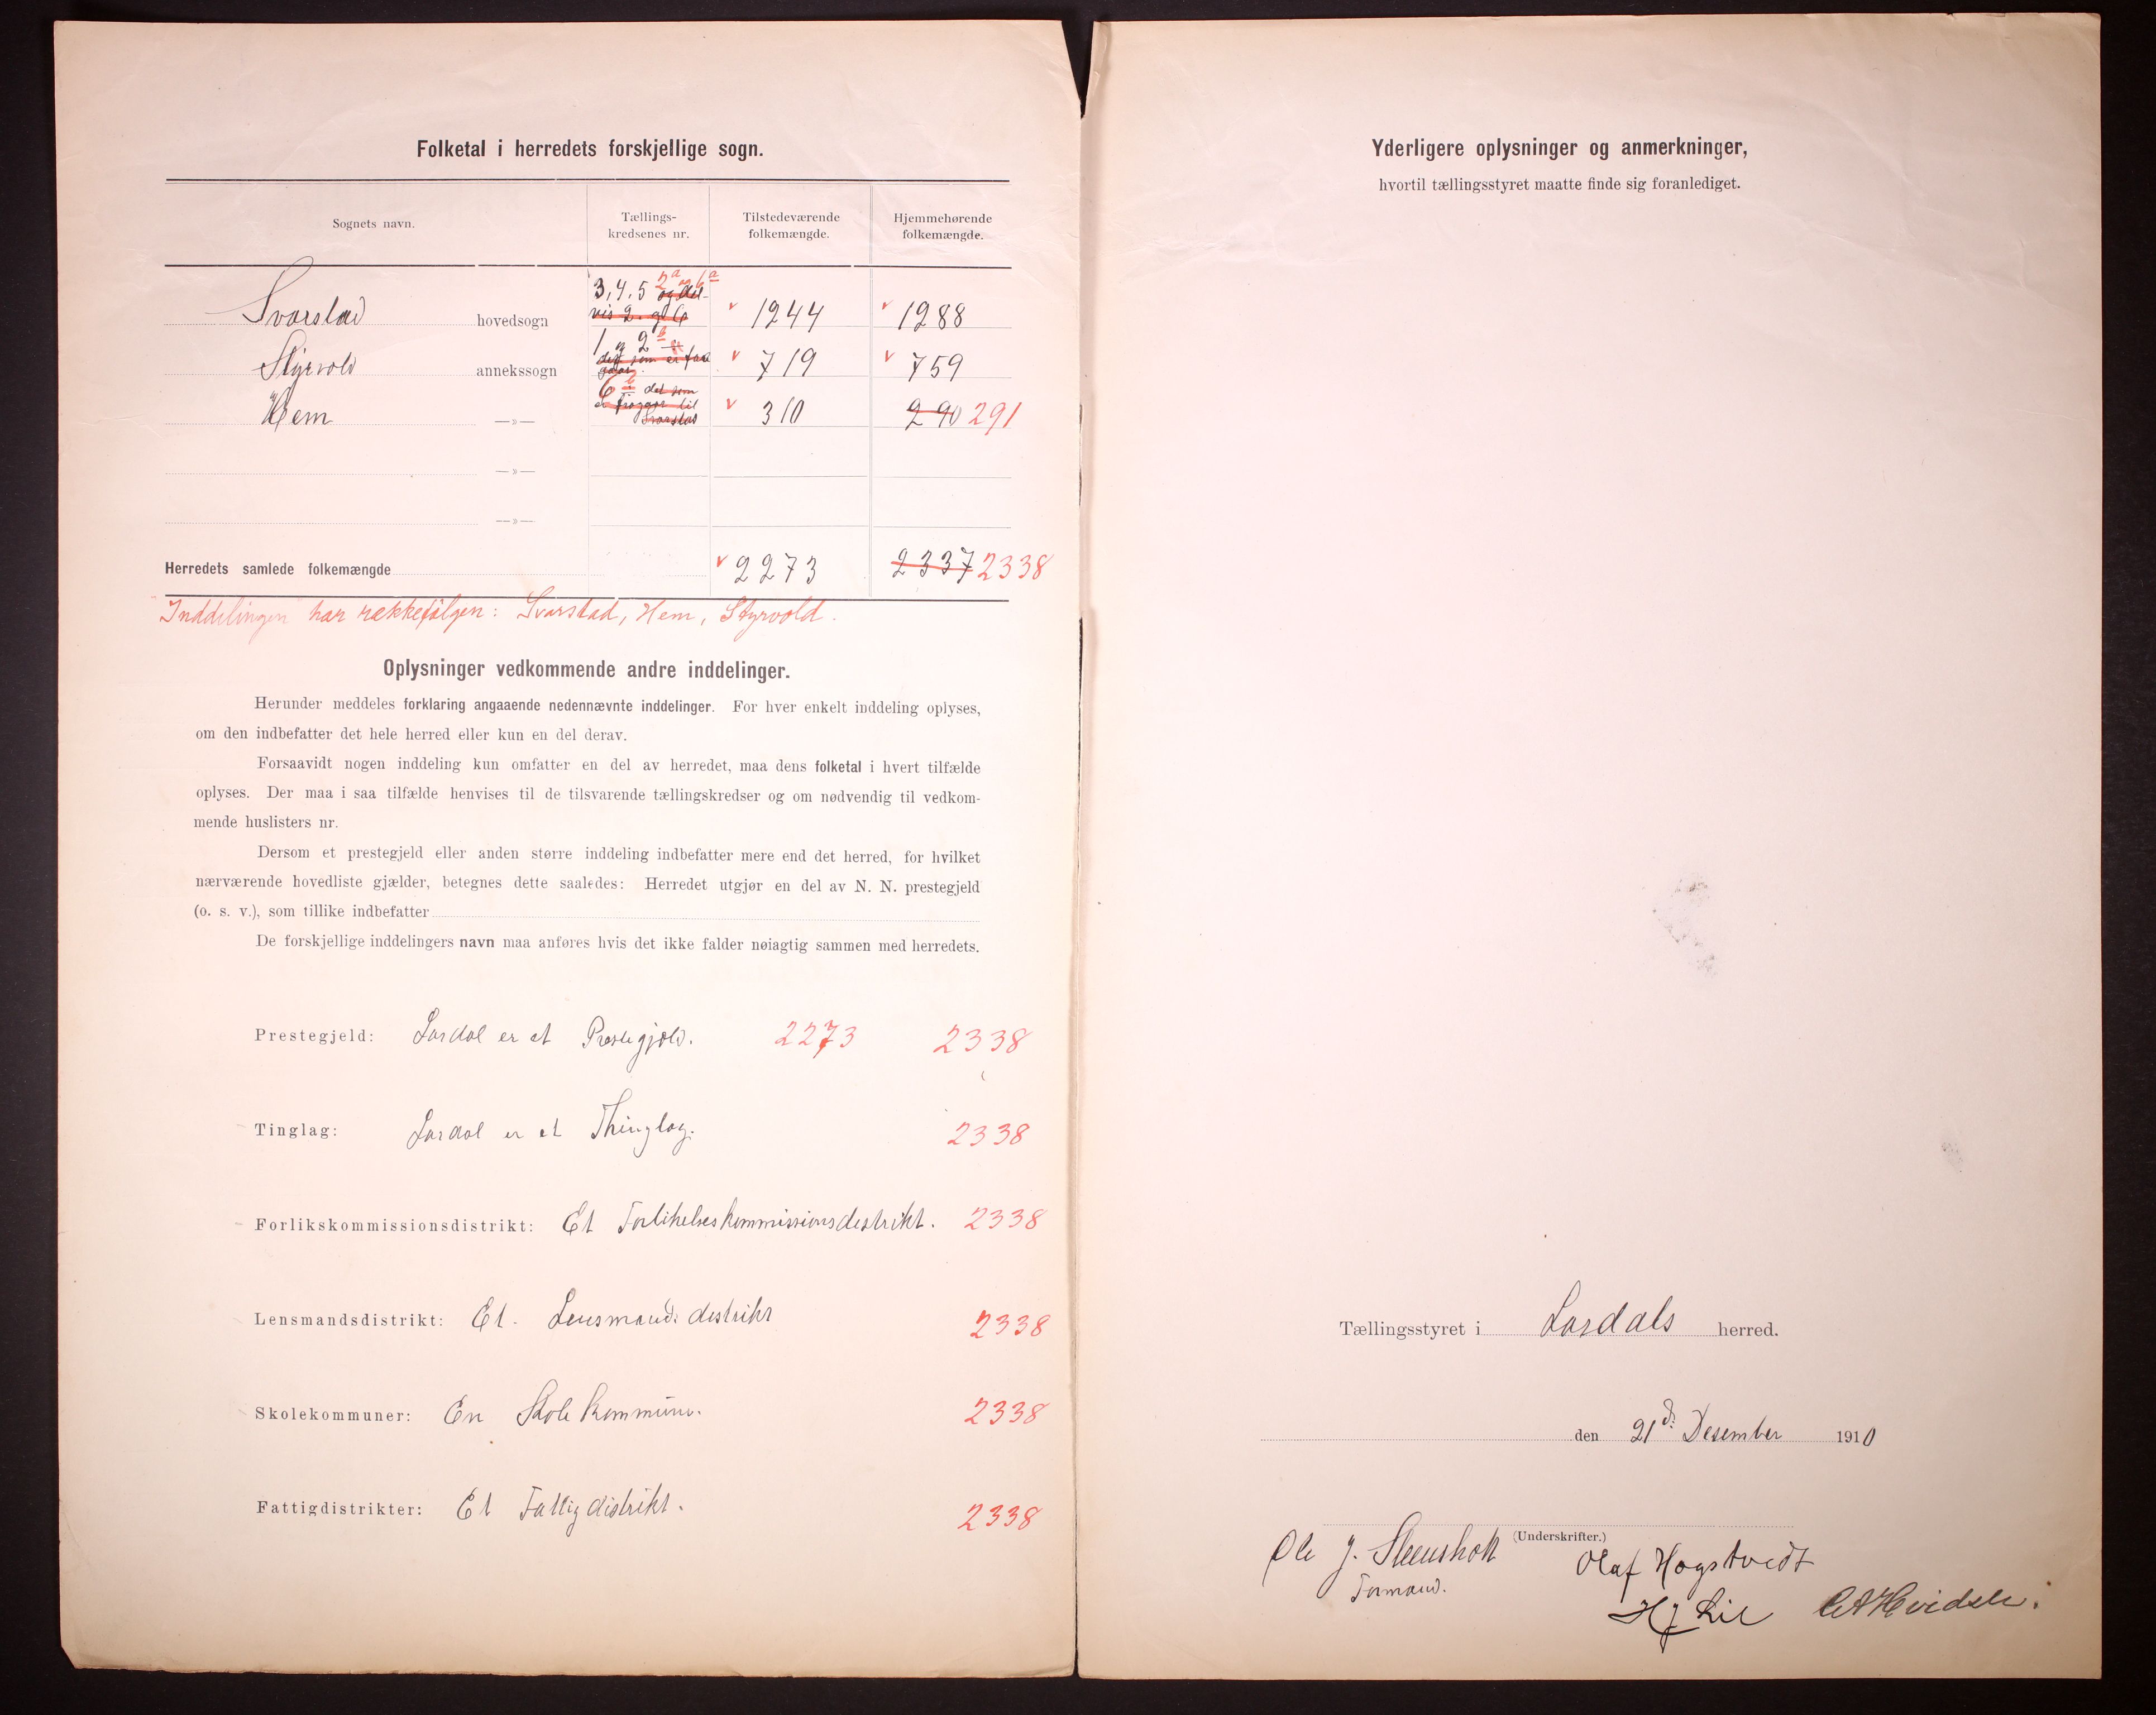 Folketal i herredets forskjellige sogn.
Sognets navn.
Tællings-
kredsenes nr.
Tilstedeværende
folkemængde.
Hjemmehørende
folkemængde.
3, 4, 5 og del- 2a og 6a
vis 2 og 6
Svarstad hovedsogn 1244 1288
1 og 2 b
det som er fra
Styrvold annekssogn 719 759
6 b det som
Hem —»— 310 290 291
fragaar til
Svarstad
—»—
—»—
Herredets samlede folkemængde 2273 2337 2338
"Inddelingen" har rækkefølgen: Svarstad, Hem, Styrvold.
Oplysninger vedkommende andre inddelinger.
Herunder meddeles forklaring angaaende nedennævnte inddelinger. For hver enkelt inddeling oplyses,
om den indbefatter det hele herred eller kun en del derav.
Forsaavidt nogen inddeling kun omfatter en del av herredet, maa dens folketal i hvert tilfælde
oplyses. Der maa i saa tilfælde henvises til de tilsvarende tællingskredser og om nødvendig til vedkom-
mende huslisters nr.
Dersom et prestegjeld eller anden større inddeling indbefatter mere end det herred, for hvilket
nærværende hovedliste gjælder, betegnes dette saaledes: Herredet utgjør en del av N. N. prestegjeld
(o. s. v.), som tillike indbefatter
De forskjellige inddelingers navn maa anføres hvis det ikke falder nøiagtig sammen med herredets.
Prestegjeld: Lardal er et Prestegjeld. 2273 2338
Tinglag: Lardal er et Thinglag. 2338
Forlikskommissionsdistrikt: Et Forlikelseskommissionsdestrikt. 2338
Lensmandsdistrikt: Et Lensmands destrikt 2338
Skolekommuner: En Skolekommune. 2338
Fattigdistrikter: Et Fattigdistrikt. 2338
Yderligere oplysninger og anmerkninger,
hvortil tællingsstyret maatte finde sig foranlediget.
Tællingsstyret i Lardals herred.
den 21d: Desember 1910
(Underskrifter.)
Ole J. Steensholt Olaf Hogstvedt
Formand.
H J Lie